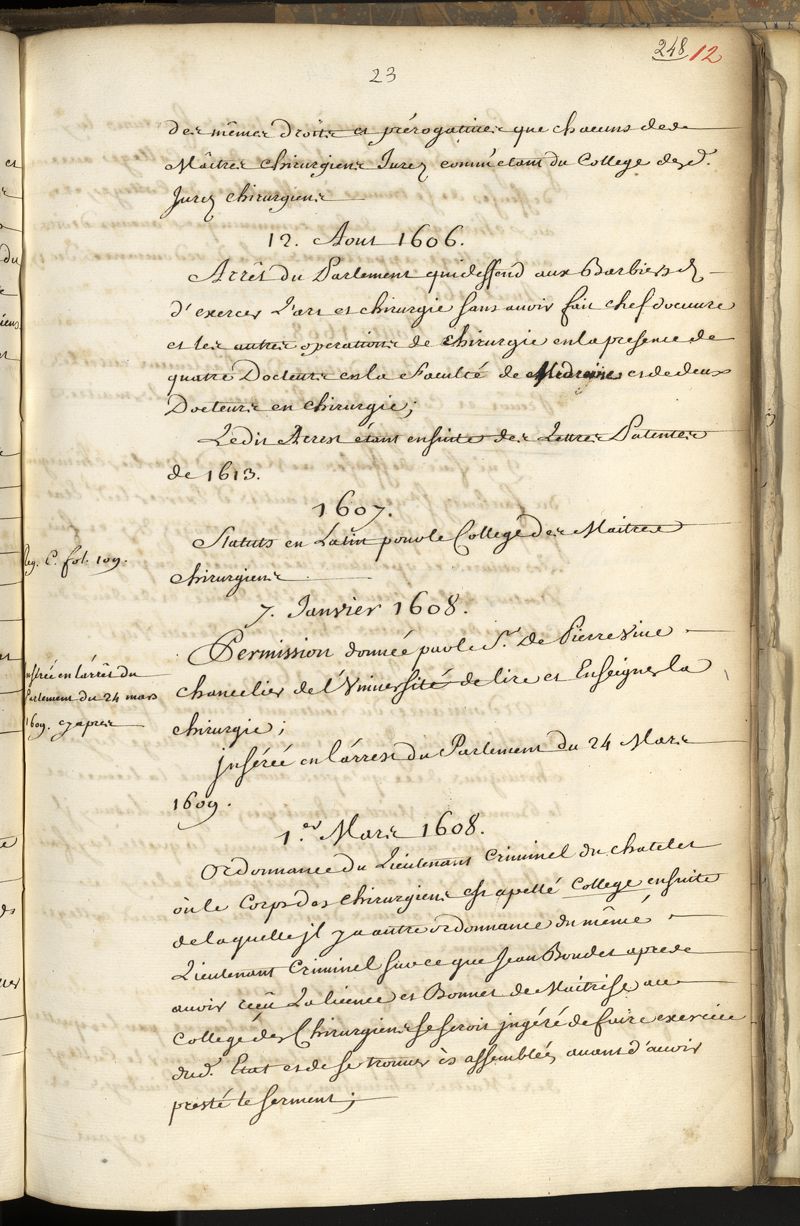 248 12
23
des mêmes droits et prérogatives que chacuns desd.
Maîtres chirurgiens Jurez comm' étant du College desd.
Jurez chirurgiens
12. Aout 1606.
Arrêt du Parlement qui deffend aux Barbiers &
d'exercer L'art et chirurgie sans avoir fait chef doeuvre
et les autres operations de Chirurgie en la presence de
quatre Docteurs en la Faculté de Medecine et de deux
Docteurs en chirurgie;
Ledit Arrest étant ensuite des Lettres Patentes
de 1613.
1607.
Statuts en Latin pour le College des Maitres
chirurgiens
Reg. C. fol. 109.
7. Janvier 1608.
Permission donnée par le Sr. De Pierrevive
chancelier de l'Université de lire et Enseigner la
chirurgie;
insérée en l'arrêt du
Parlement du 24 mars
1609. cy apres
inserée en l'arrest du Parlement du 24 Mars
1609.
1.er Mars 1608.
Ordonnance du Lieutenant Criminel du chatelet
où le Corps des chirurgiens est apellé College ensuite
de laquelle il y a autre ordonnance du même
Lieutenant Criminel sur ce que Jean Boudet apres
avoir reçû La licence et Bonnet de Maitrise au
College des Chirurgiens se seroit ingéré de faire exercice
dud. Etat et de se trouver ès assemblées avant d'avoir
presté le serment;